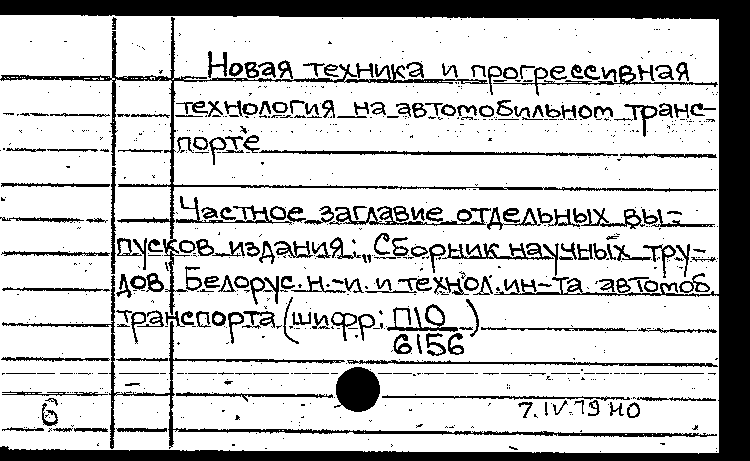 Новая техника и прогрессивная
технология на автомобильном транс-
порте
Частное заглавие отдельных вы-
пусков издания: „Сборник научных тру-
дов" Белорус. н.-и. и технол. ин-та автомоб.
транспорта (шифр: П10)
6156
6
7.IV.79 НО